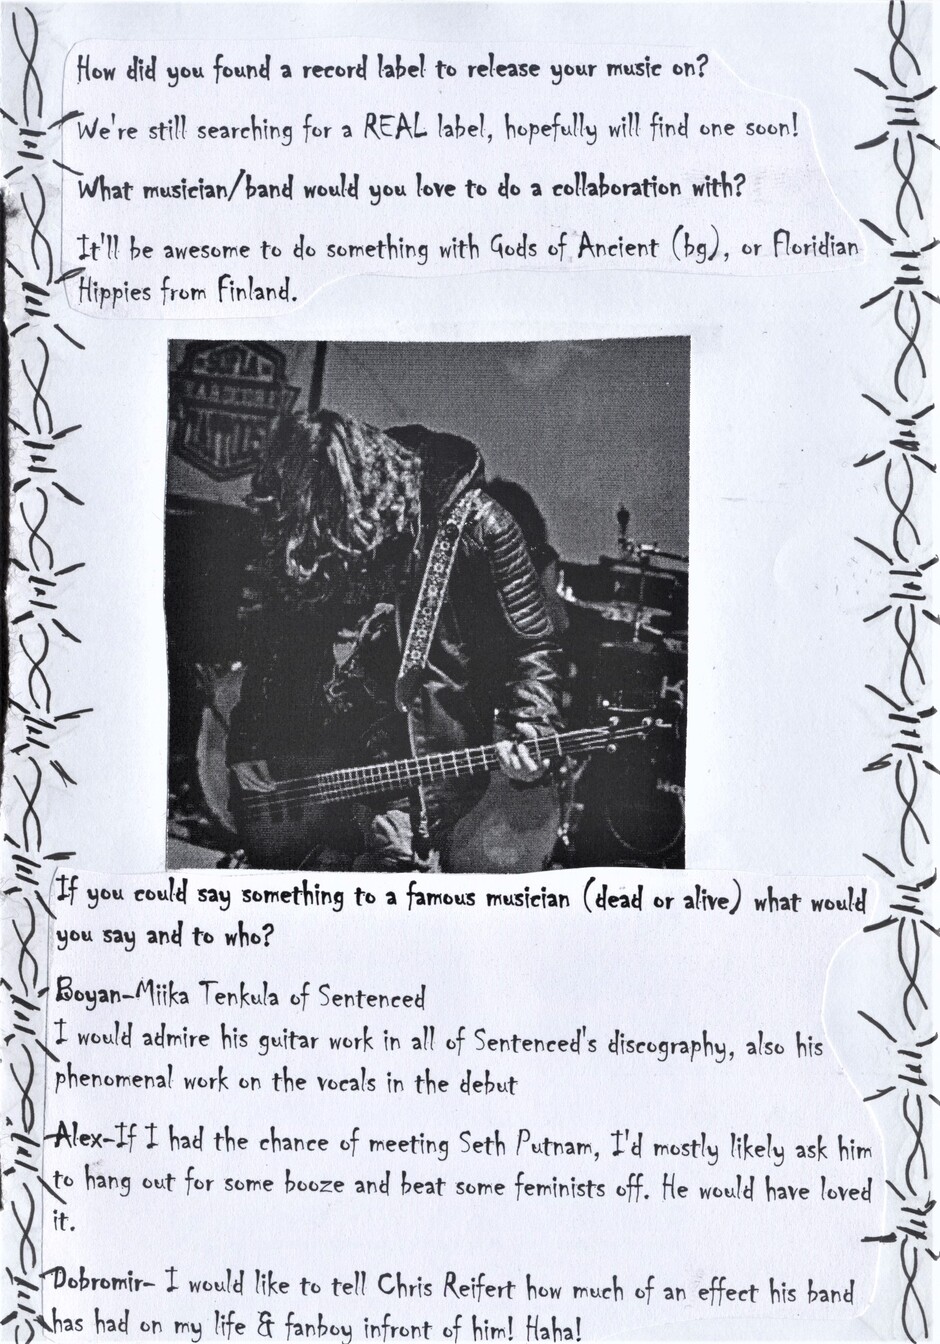 How did you found a record label to release your music on?
We're still searching for a REAL label, hopefully will find one soon!
What musician/band would you love to do a collaboration with?
It'll be awesome to do something with Gods of Ancient (bg), or Floridian
Hippies from Finland.
SOFIA
If you could say something to a famous musician (dead or alive) what would
you say and to who?
Boyan-Miika Tenkula of Sentenced
I would admire his guitar work in all of Sentenced's discography, also his
phenomenal work on the vocals in the debut
Alex-If I had the chance of meeting Seth Putnam, I'd mostly likely ask him
to hang out for some booze and beat some feminists off. He would have loved
it.
Dobromir- I would like to tell Chris Reifert how much of an effect his band
has had on my life & fanboy infront of him! Haha!